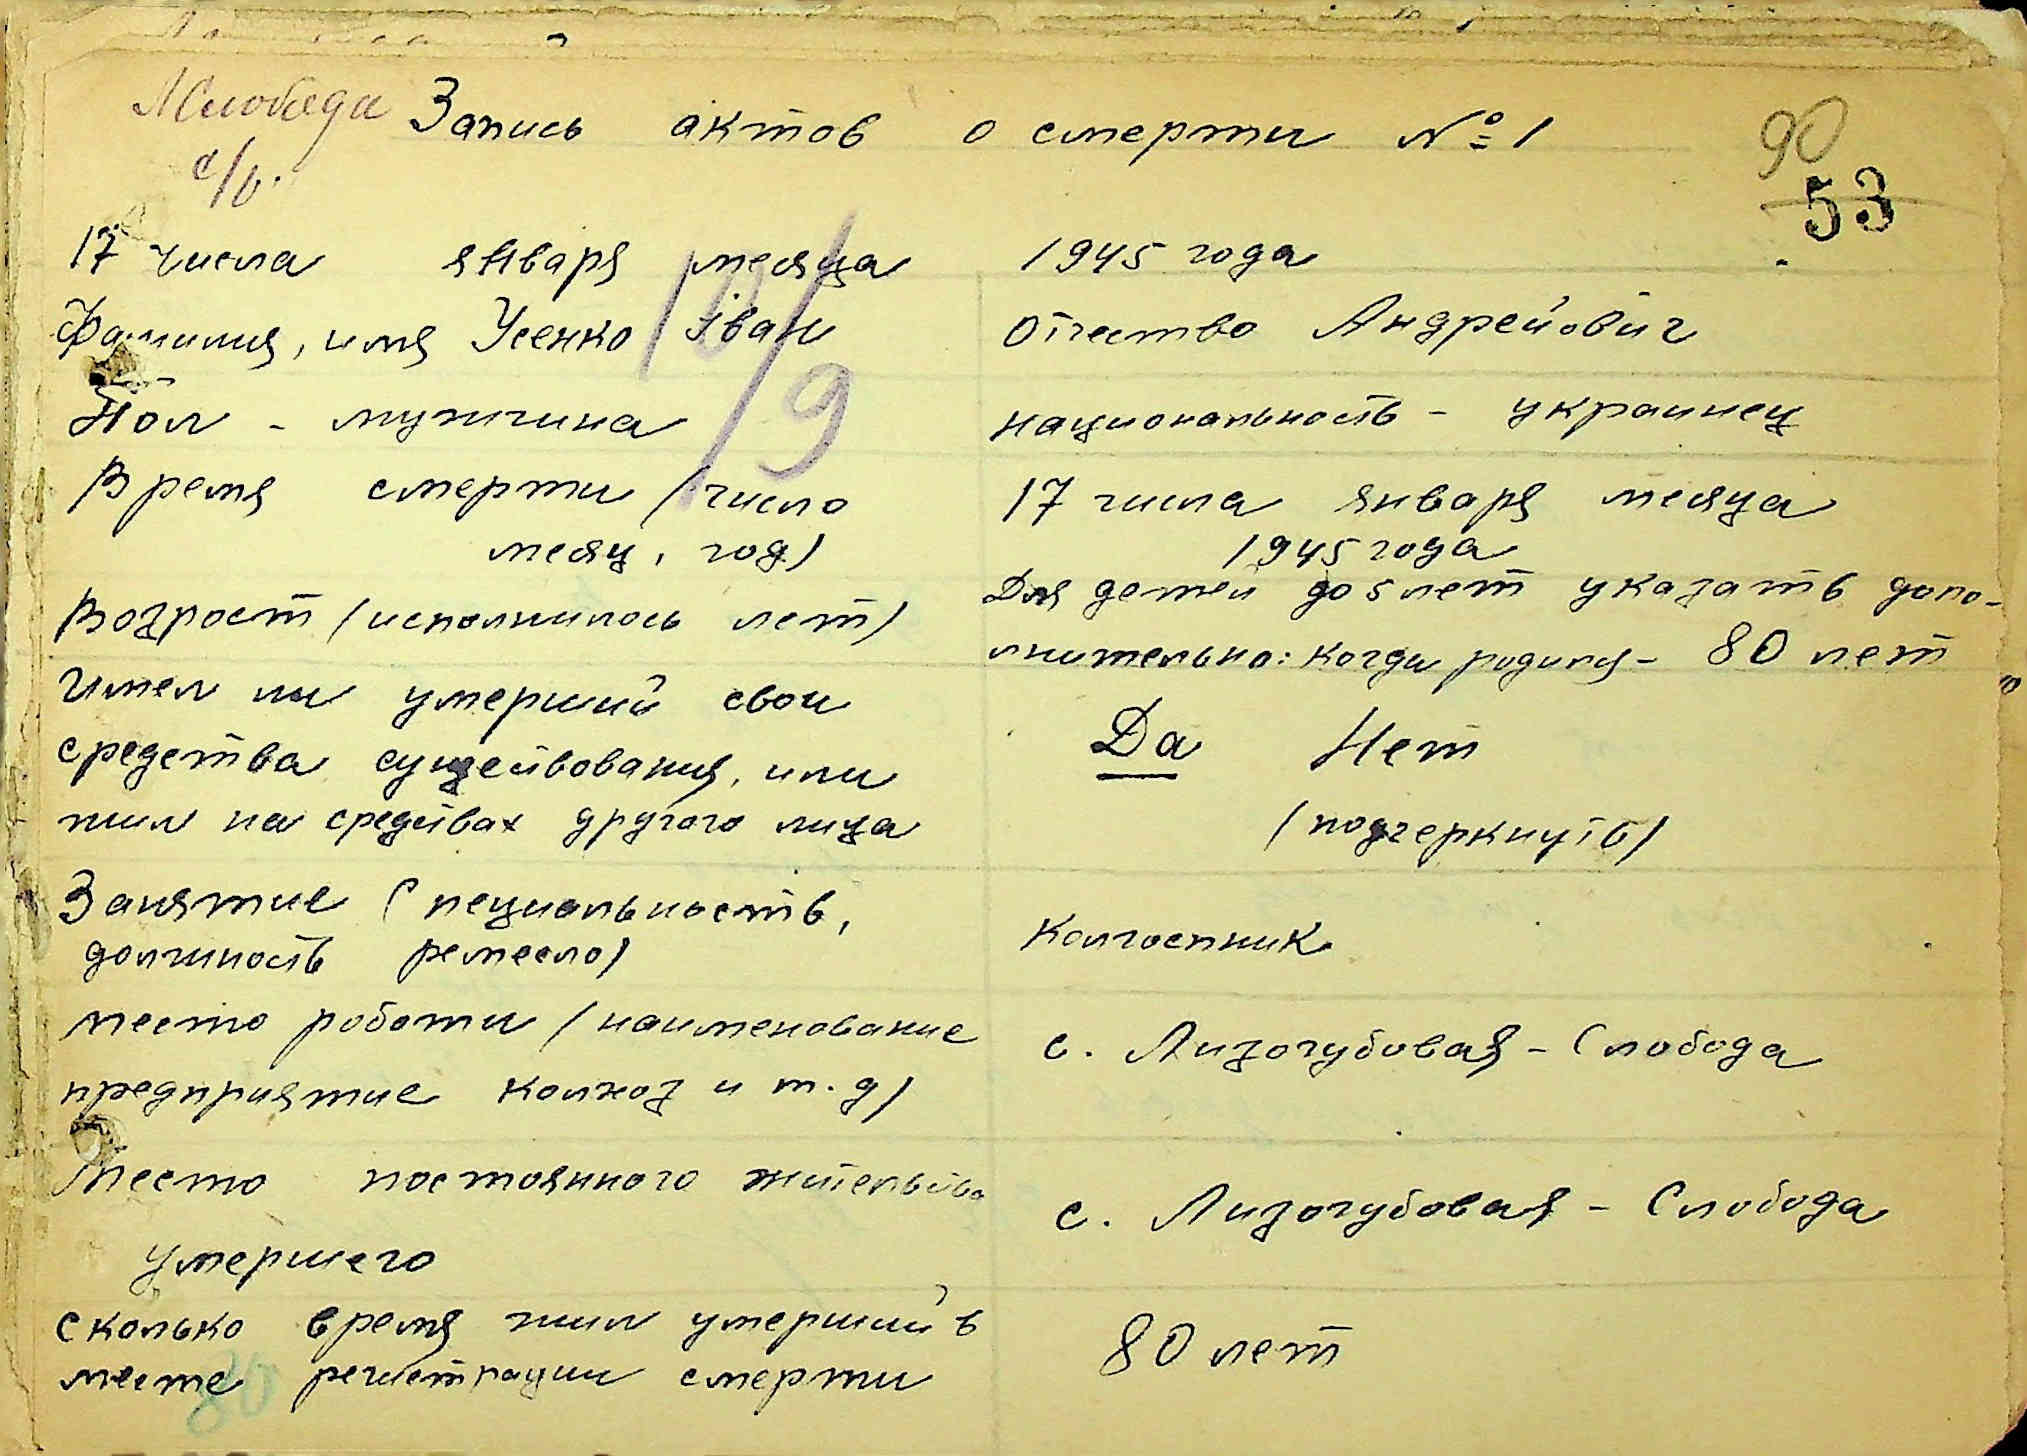 Запись актов о смерти № 1
с/в.
90
53
17 числа января месяца 1945 года
Фамилия, имя Усенко Іван Отчество Андрейович
10/9
Пол - мужчина национальность - украинец
Время смерти (число 17 числа января месяца
месяц, год) 1945 года
Возрост (исполнилось лет) Для детей до 5 лет указать допо-
лнительно: когда родился - 80 лет
Имел ли умерший свои
средства существования, или Да Нет
жил на средствах другого лица (подчеркнуть)
Занятие (Специальность,
должность ремесло) Колгоспник
место роботи (наименование с. Лизогубовая - Слобода
предприятие колхоз и т. д)
Место постоянного жительства с. Лизогубовая - Слобода
умершего
сколько время жил умерший в 80 лет
месте регистрации смерти
80